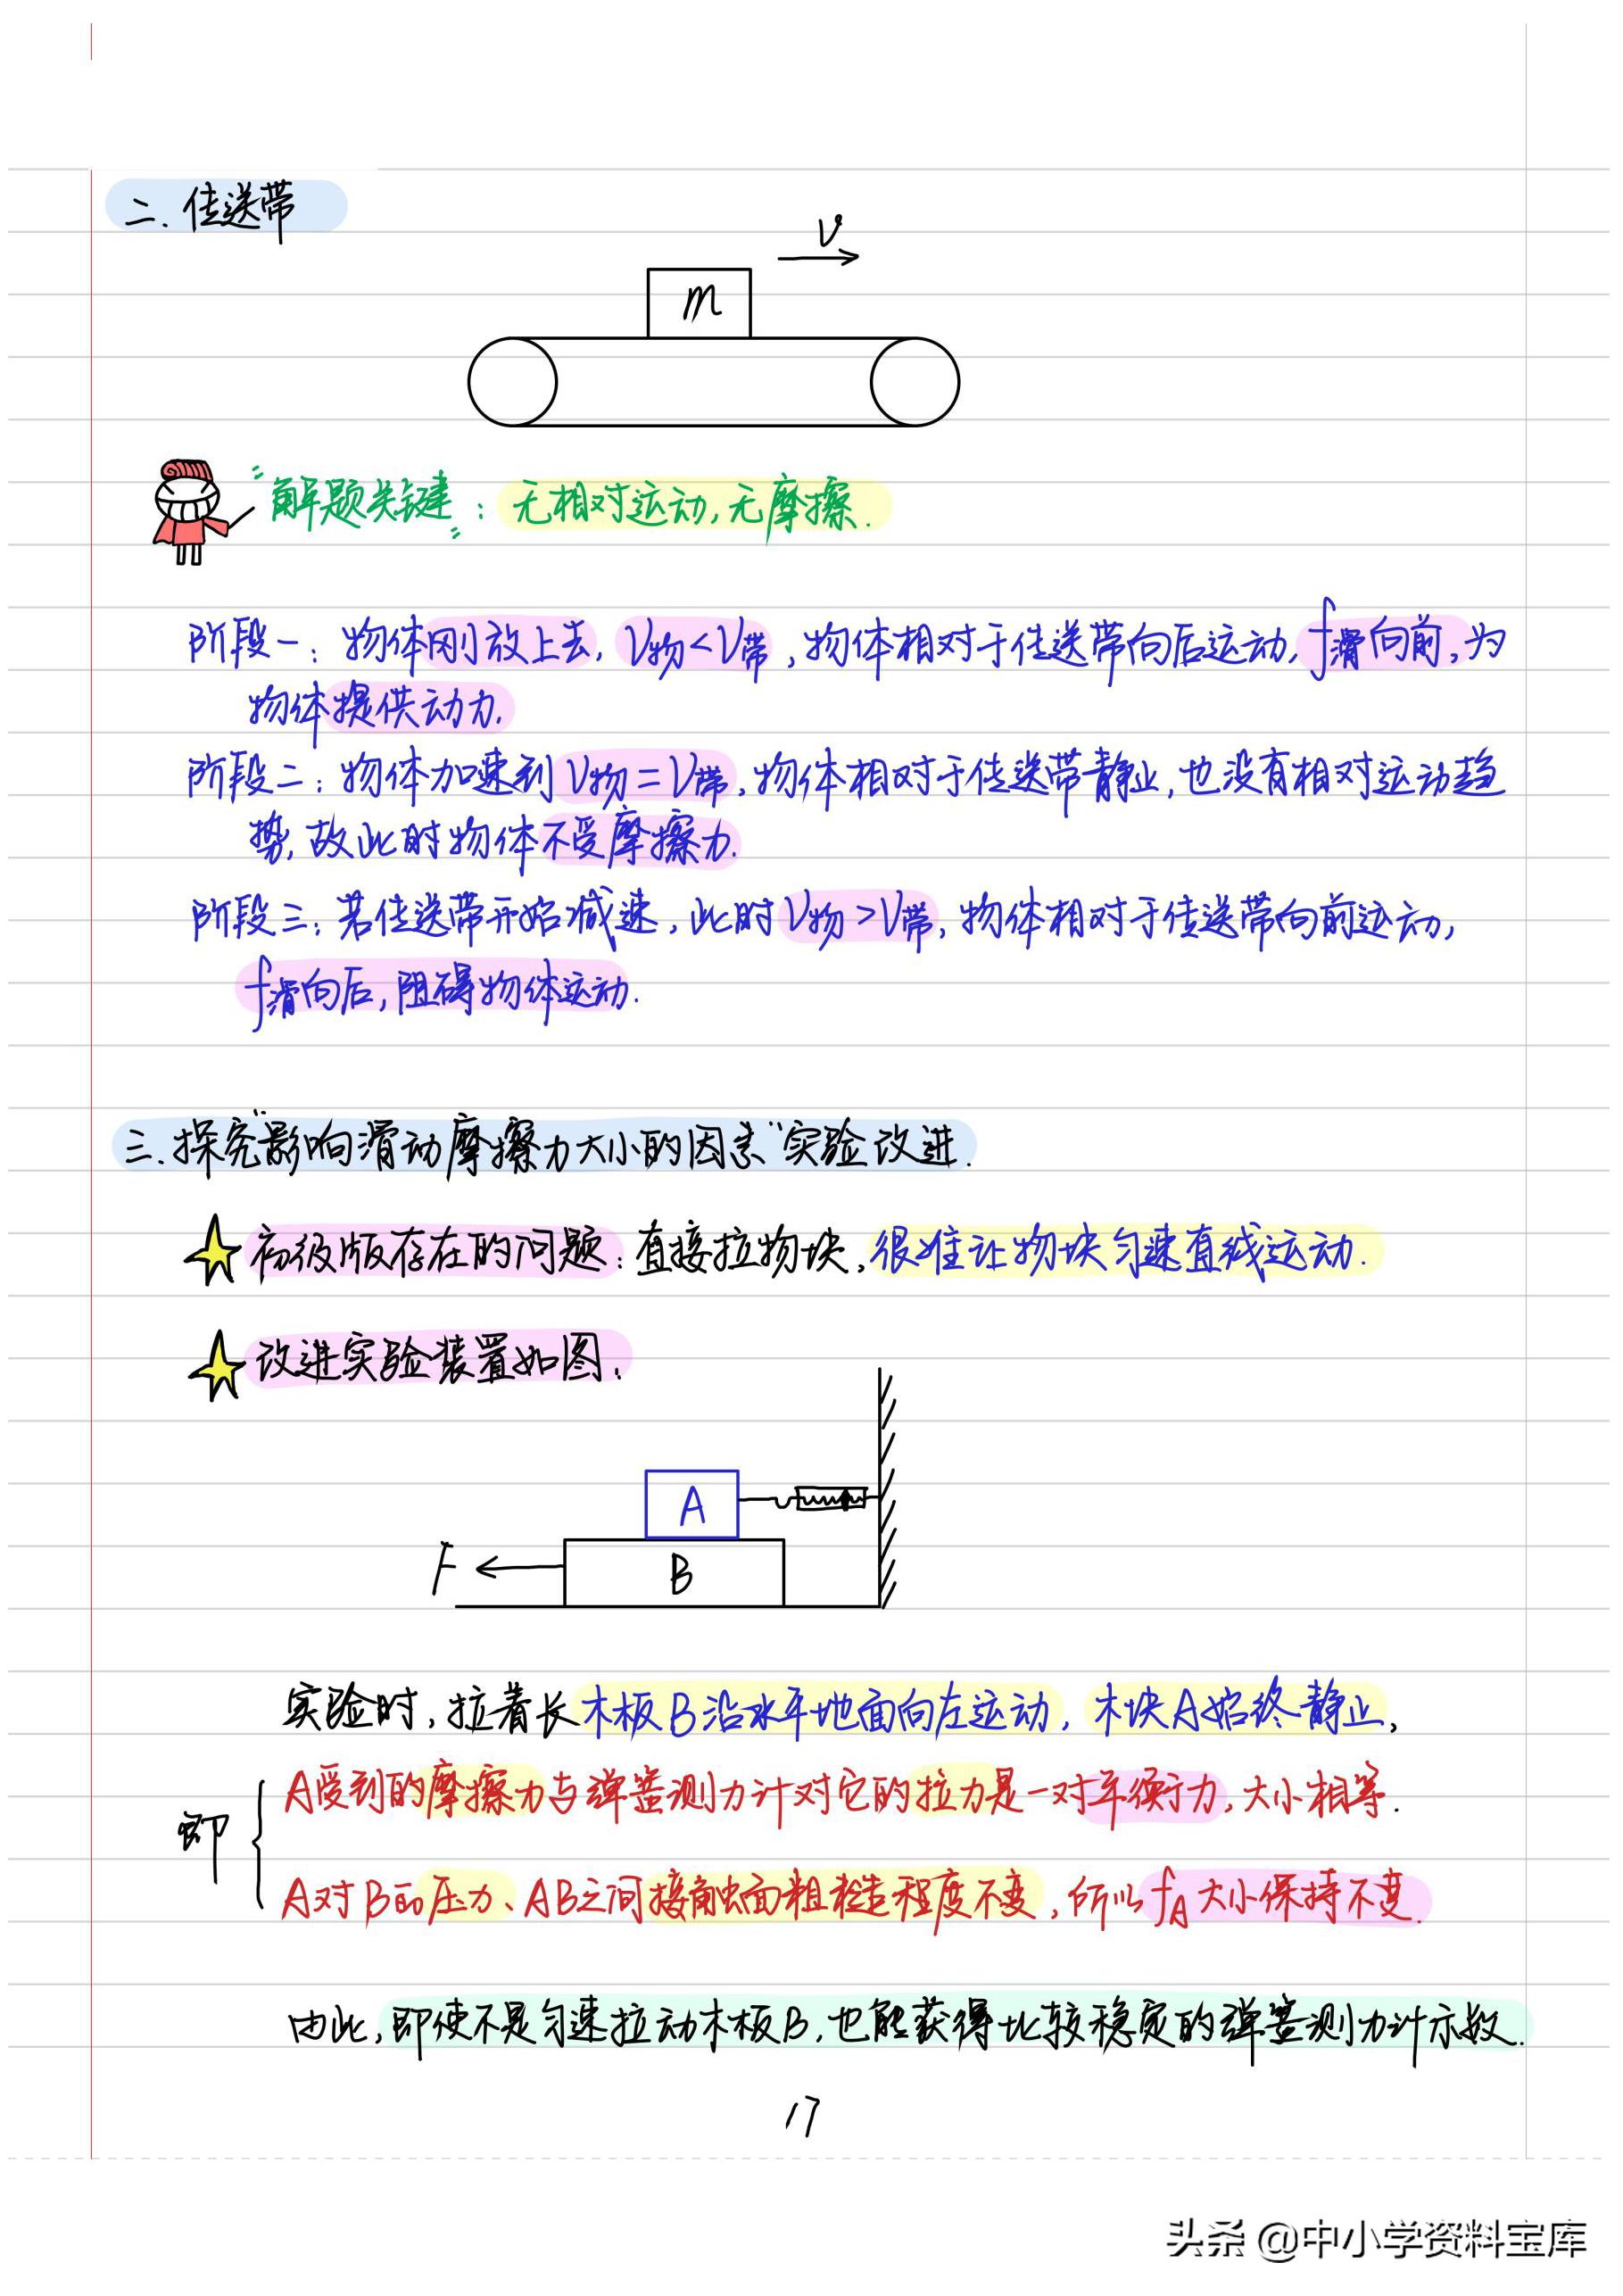 二.传送带
v
m
"解题关键": 无相对运动,无摩擦.
阶段一: 物体刚放上去, V物<V带, 物体相对于传送带向后运动, f滑向前, 为
物体提供动力.
阶段二: 物体加速到V物=V带, 物体相对于传送带静止, 也没有相对运动趋
势, 故此时物体不受摩擦力.
阶段三: 若传送带开始减速, 此时V物>V带, 物体相对于传送带向前运动,
f滑向后, 阻碍物体运动.
三.探究"影响滑动摩擦力大小的因素"实验改进.
初级版存在的问题: 直接拉物块, 很难让物块匀速直线运动.
改进实验装置如图.
A
F
B
实验时, 拉着长木板B沿水平地面向左运动, 木块A始终静止,
即
A受到的摩擦力与弹簧测力计对它的拉力是一对平衡力, 大小相等.
A对B的压力、AB之间接触面粗糙程度不变, 所以fA大小保持不变.
由此, 即使不是匀速拉动木板B, 也能获得比较稳定的弹簧测力计示数.
17
头条 @中小学资料宝库